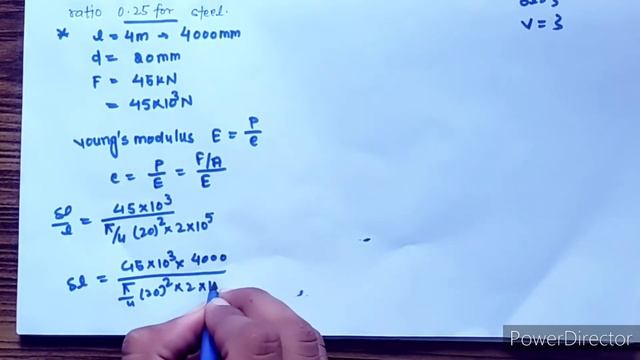 ratio 0.25 for steel.
* l = 4m → 4000mm
d = 20mm
F = 45KN
= 45×10³N
Young's modulus E = P/e
e = P/E = F/A / E
δl/l = 45×10³ / π/4 (20)² × 2×10⁵
δl = 45×10³ × 4000 / π/4 (20)² × 2×1
V = 3
PowerDirector